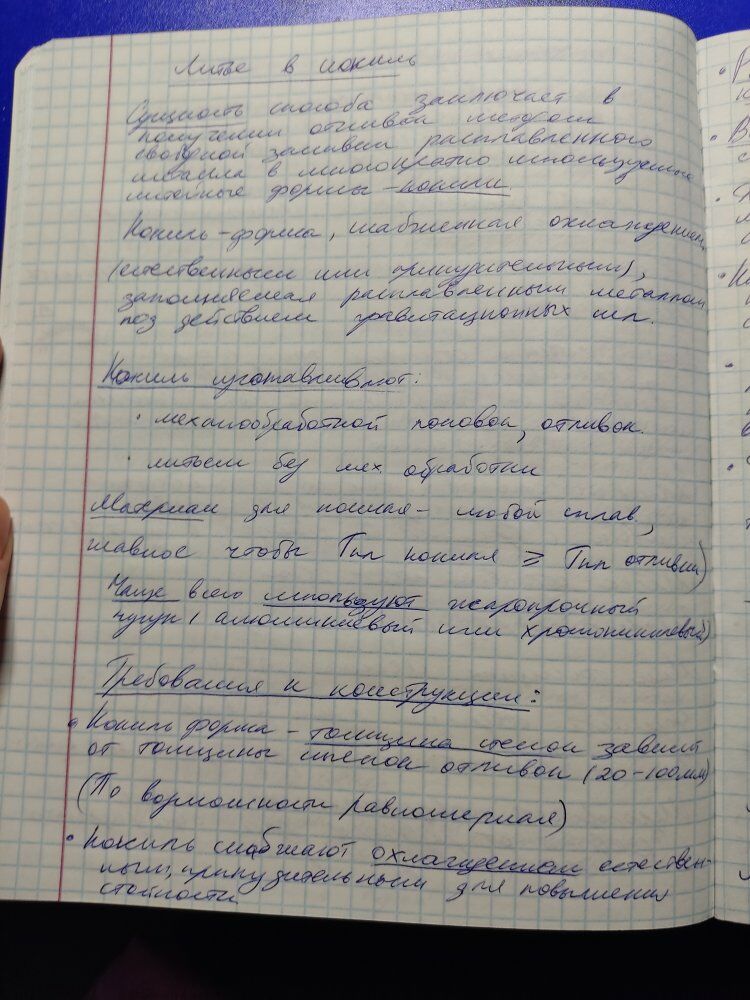 Литье в кокиль
Сущность способа заключает в
получении отливок методом
свободной заливки расплавленного
металла в многократно используемые
литейные формы - кокили.
Кокиль - форма, снабженная охлаждением,
(естественным или принудительным),
заполняемая расплавленным металлом
под действием гравитационных сил.
Кокиль изготавливают:
· механообработкой поковок, отливок.
· литьем без мех. обработки
Материал для кокиля - любой сплав,
главное чтобы Тпл кокиля ⩾ Тпл отливки)
Чаще всего используют жаропрочный
чугун (алюминиевый или хромоникелевый)
Требования к конструкции:
• Кокиль форма - толщина стенок зависит
от толщины стенок отливок (20-100мм)
(По возможности равномерная)
• Кокиль снабжают охлаждением естествен-
ным, принудительным для повышения
стойкости